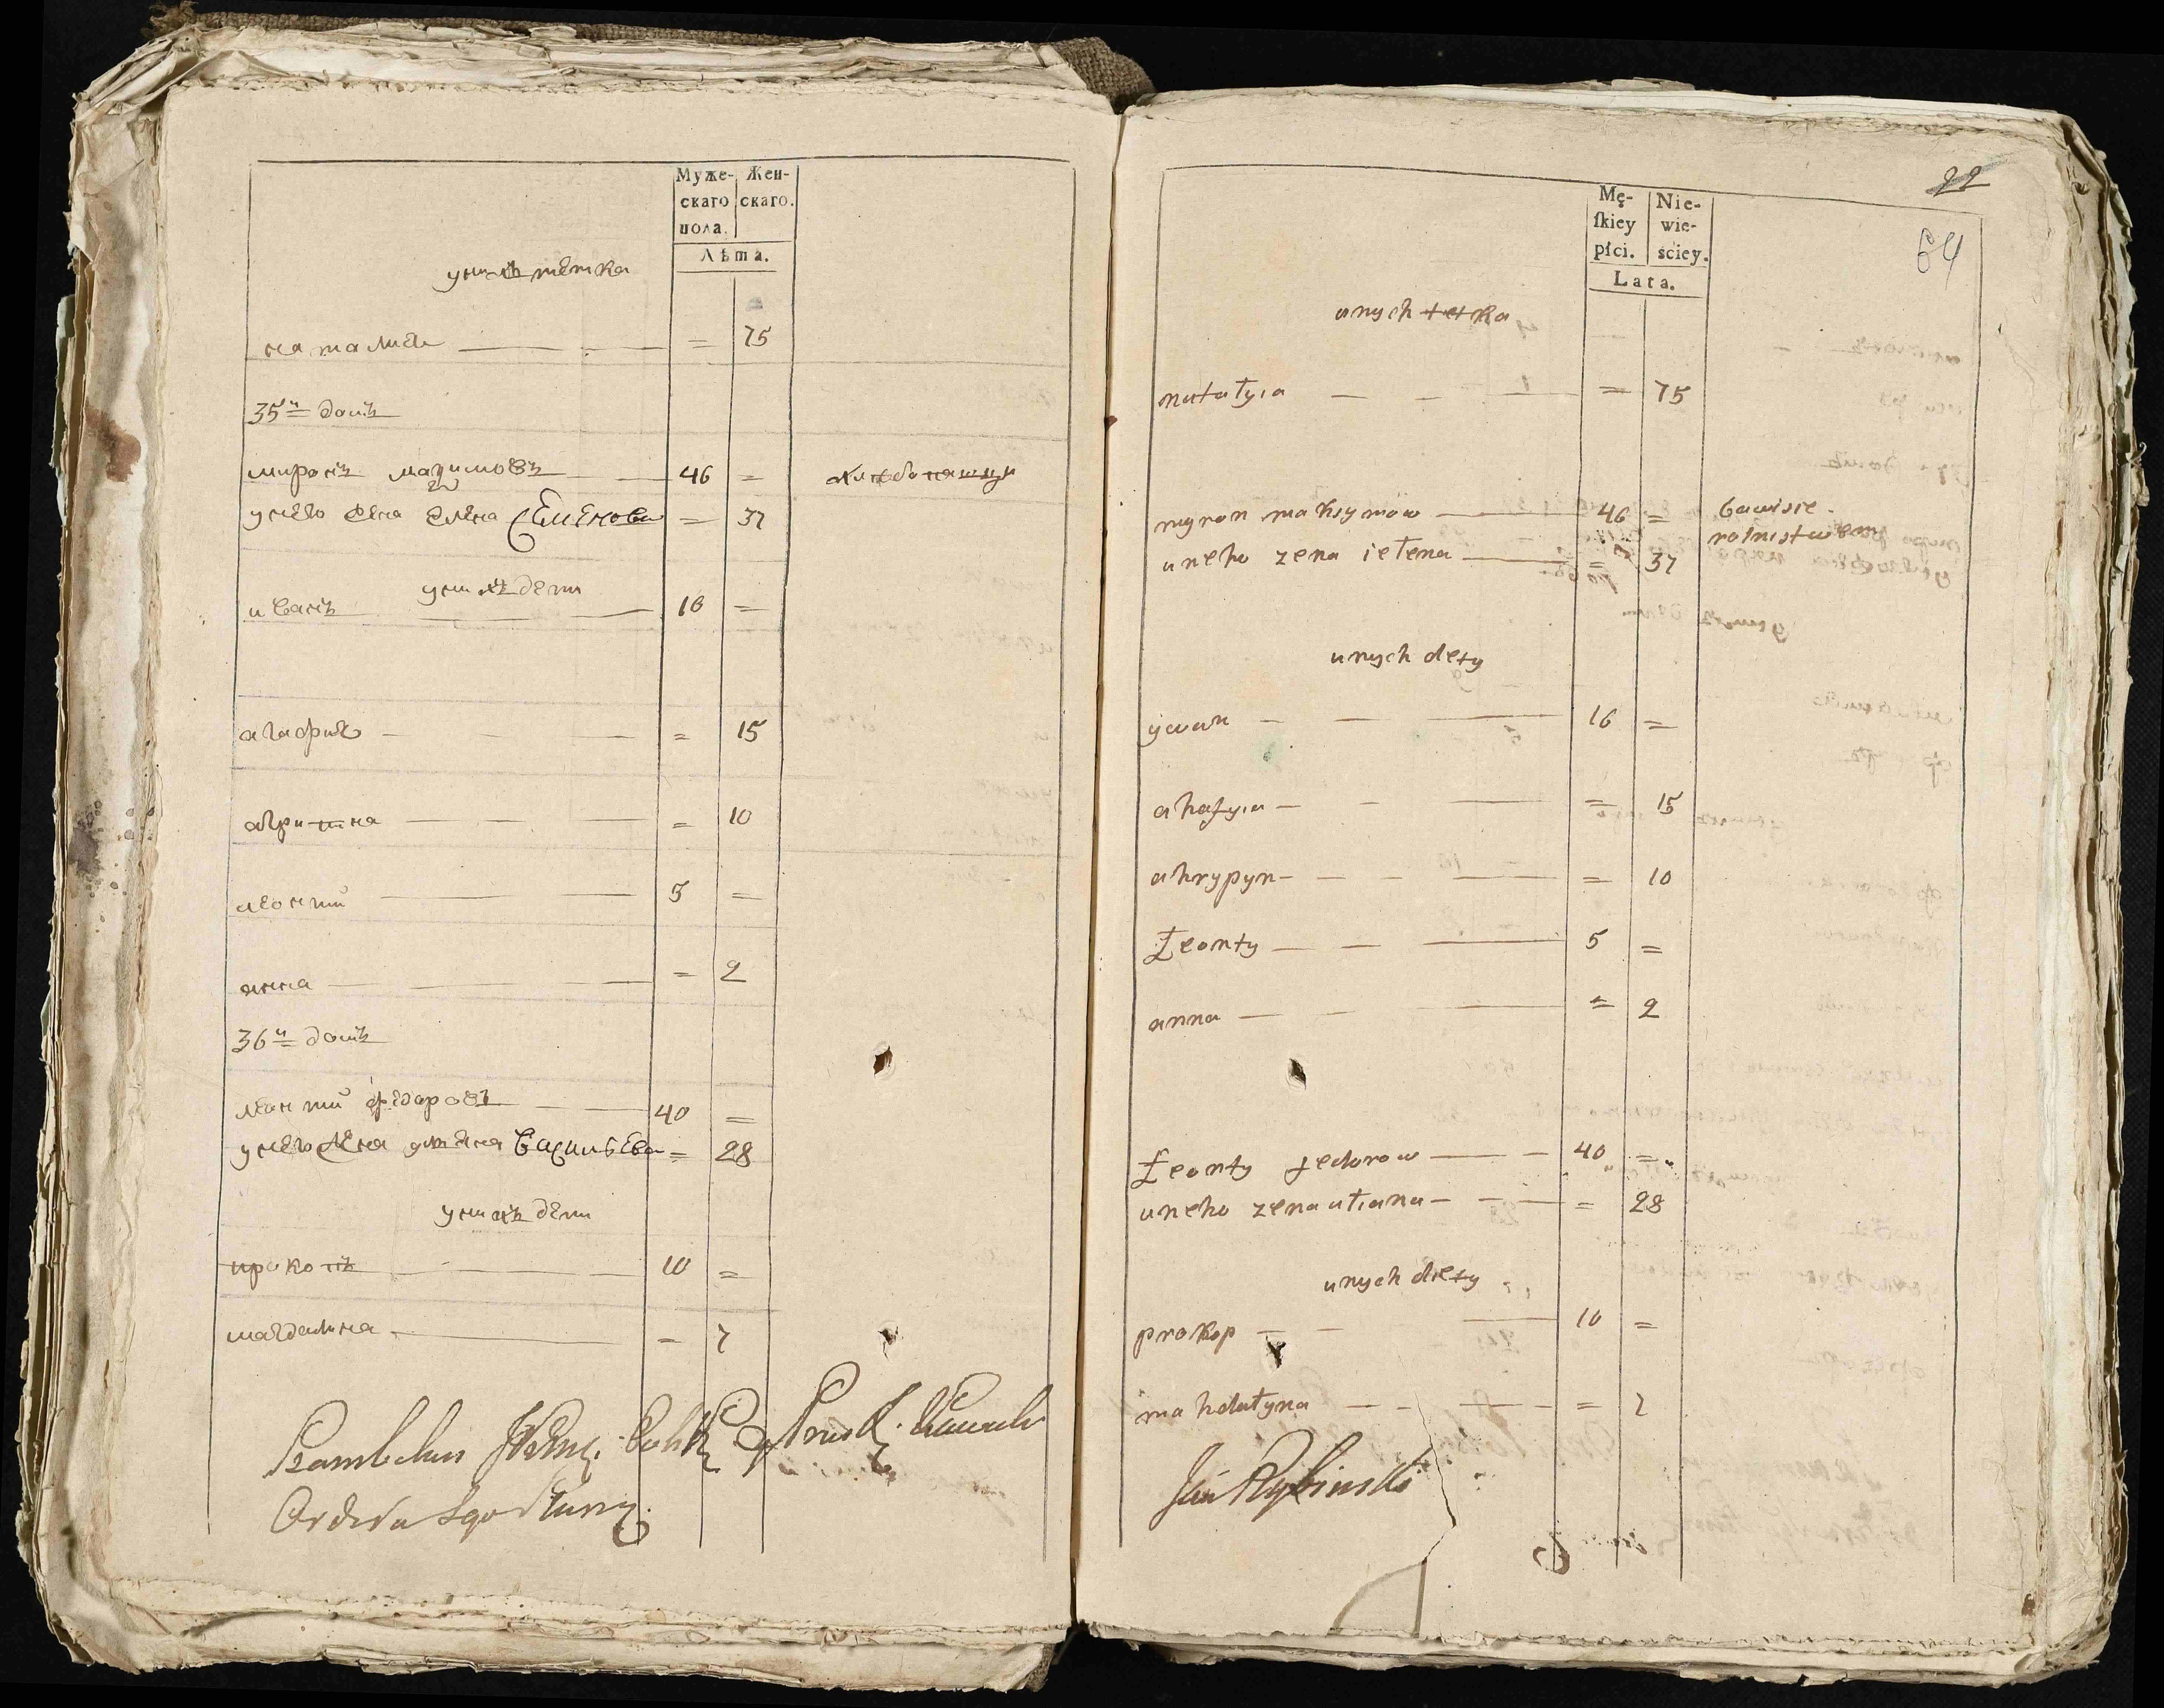 Муже- Жен-
скаго скаго.
пола.
Лѣта.
у нихъ тетка
наталия — = 75
35й домъ
миронъ мазимовъ — 46 =
у него жена елена Семенова = 37
у нихъ дети
иванъ — 16 =
агафия — = 15
агрипина — = 10
леонтий — 5 =
анна — = 2
36й домъ
леонтий федоровъ — 40 =
у него жена улияна Васильева = 28
у нихъ дети
прокопъ — 10 =
магдалина — = 7
22
64
Mę- Nie-
ſkiey wie-
płci. ściey.
Lata.
unych tetka
natałyia — = 75
myron maksymow — 46 = bawisie
rolnistwem
uneho zena iełena — = 37
unych dety
ywan — 16 =
ahafyia — = 15
ahrypyn — = 10
Łeonty — 5 =
anna — = 2
Łeonty fedorow — 40 =
uneho zena uliana — = 28
unych diety
prokop — 10 =
mahdałyna — = 7
Jan Rybinski